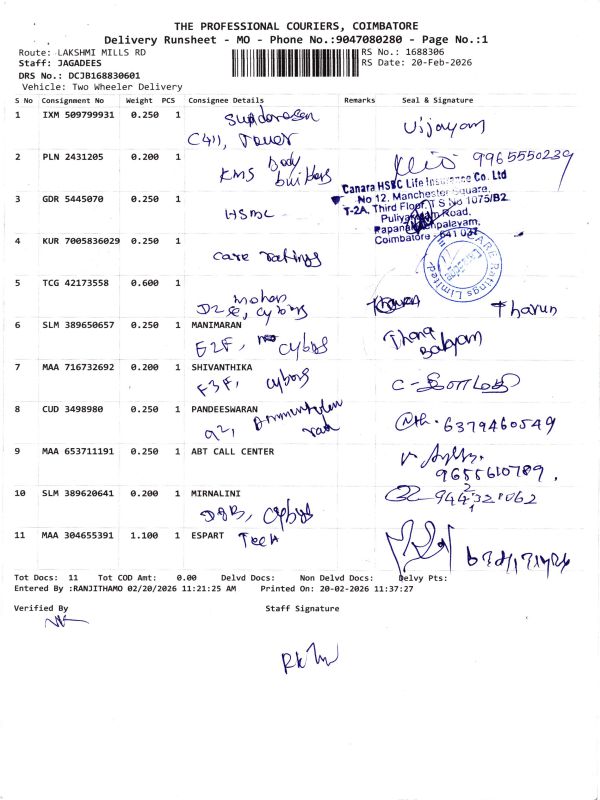 THE PROFESSIONAL COURIERS, COIMBATORE
Delivery Runsheet - MO - Phone No.:9047080280 - Page No.:1
Route: LAKSHMI MILLS RD
RS No.: 1688306
Staff: JAGADEES
RS Date: 20-Feb-2026
DRS No.: DCJB168830601
Vehicle: Two Wheeler Delivery
S No Consignment No Weight PCS Consignee Details Remarks Seal & Signature
1 IXM 509799931 0.250 1 Sundaresan Vijayam
C411, Tower
2 PLN 2431205 0.200 1 KMS Body builders 9965550239
3 GDR 5445070 0.250 1 HSBC
Canara HSBC Life Insurance Co. Ltd
No 12, Manchester Square,
T-2A, Third Floor, T S No 1075/B2
Puliyakulam Road,
Papanaickenpalayam,
Coimbatore - 641 037
4 KUR 7005836029 0.250 1 care ratings
CARE Ratings Limited
5 TCG 42173558 0.600 1 Mohan Tharun
D2E, cybrgs
6 SLM 389650657 0.250 1 MANIMARAN
E2F, cybrgs
7 MAA 716732692 0.200 1 SHIVANTHIKA
F3F, cybrgs
8 CUD 3498980 0.250 1 PANDEESWARAN 6379460549
9 MAA 653711191 0.250 1 ABT CALL CENTER 9655610789.
10 SLM 389620641 0.200 1 MIRNALINI
cybrgs
11 MAA 304655391 1.100 1 ESPART Tech
Tot Docs: 11 Tot COD Amt: 0.00 Delvd Docs: Non Delvd Docs: Delvy Pts:
Entered By :RANJITHAMO 02/20/2026 11:21:25 AM Printed On: 20-02-2026 11:37:27
Verified By Staff Signature